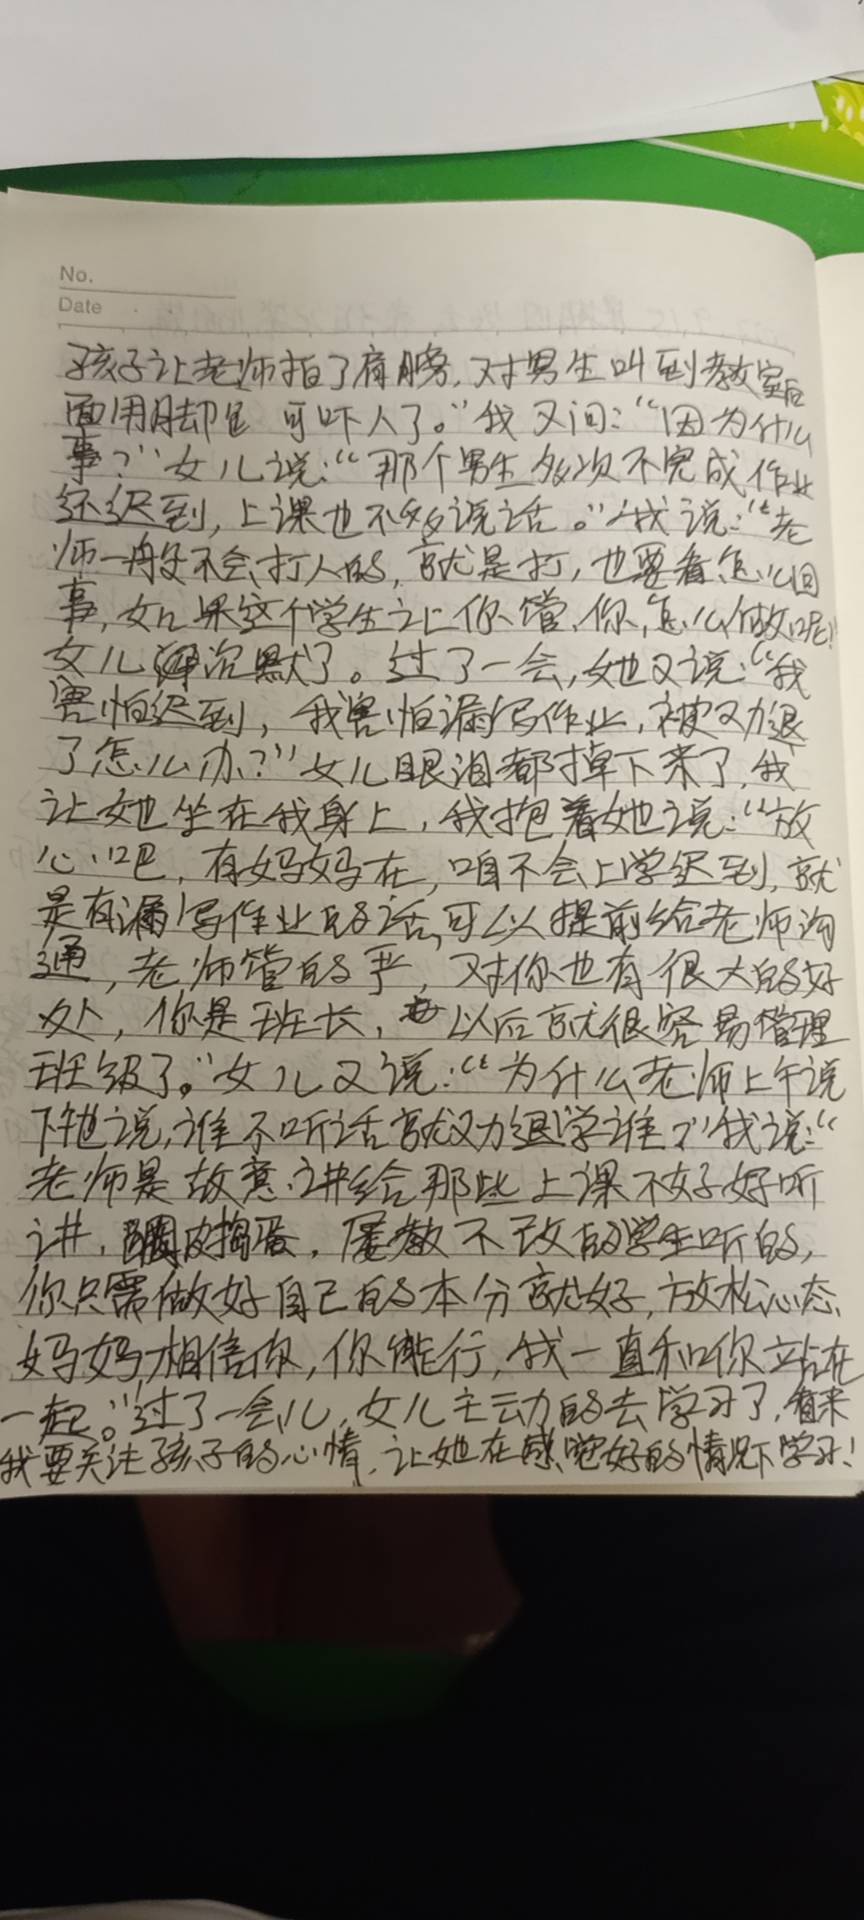 No.
Date
孩子让老师拍了肩膀,对男生叫到教室后
面用脚 可吓人了。”我又问:“因为什么
事?”女儿说:“那个男生多次不完成作业
还迟到,上课也不 说话。”我说:“老
师一般不会打人的,就是打,也要看怎么回
事,如果这个学生让你管,你,怎么做呢!
女儿沉默了。过了一会,她又说:“我
害怕迟到,我害怕漏写作业,被劝退
了怎么办?”女儿眼泪都掉下来了,我
让她坐在我身上,我抱着她说:“放
心吧,有妈妈在,咱不会上学迟到,就
是有漏写作业的话,可以提前给老师沟
通,老师管的严,对你也有很大的好
处,你是班长,以后就很容易管理
班级了。”女儿又说:“为什么老师上午说
下午也说,谁不听话就劝退学谁了”我说:“
老师是故意讲给那些上课不好好听
讲,调皮捣蛋,屡教不改的学生听的,
你只需做好自己的本分就好,放松心态,
妈妈相信你,你能行,我一直和你站在
一起。”过了一会儿,女儿主动的去学习了,看来
我要关注孩子的心情,让她在感觉好的情况下学习!